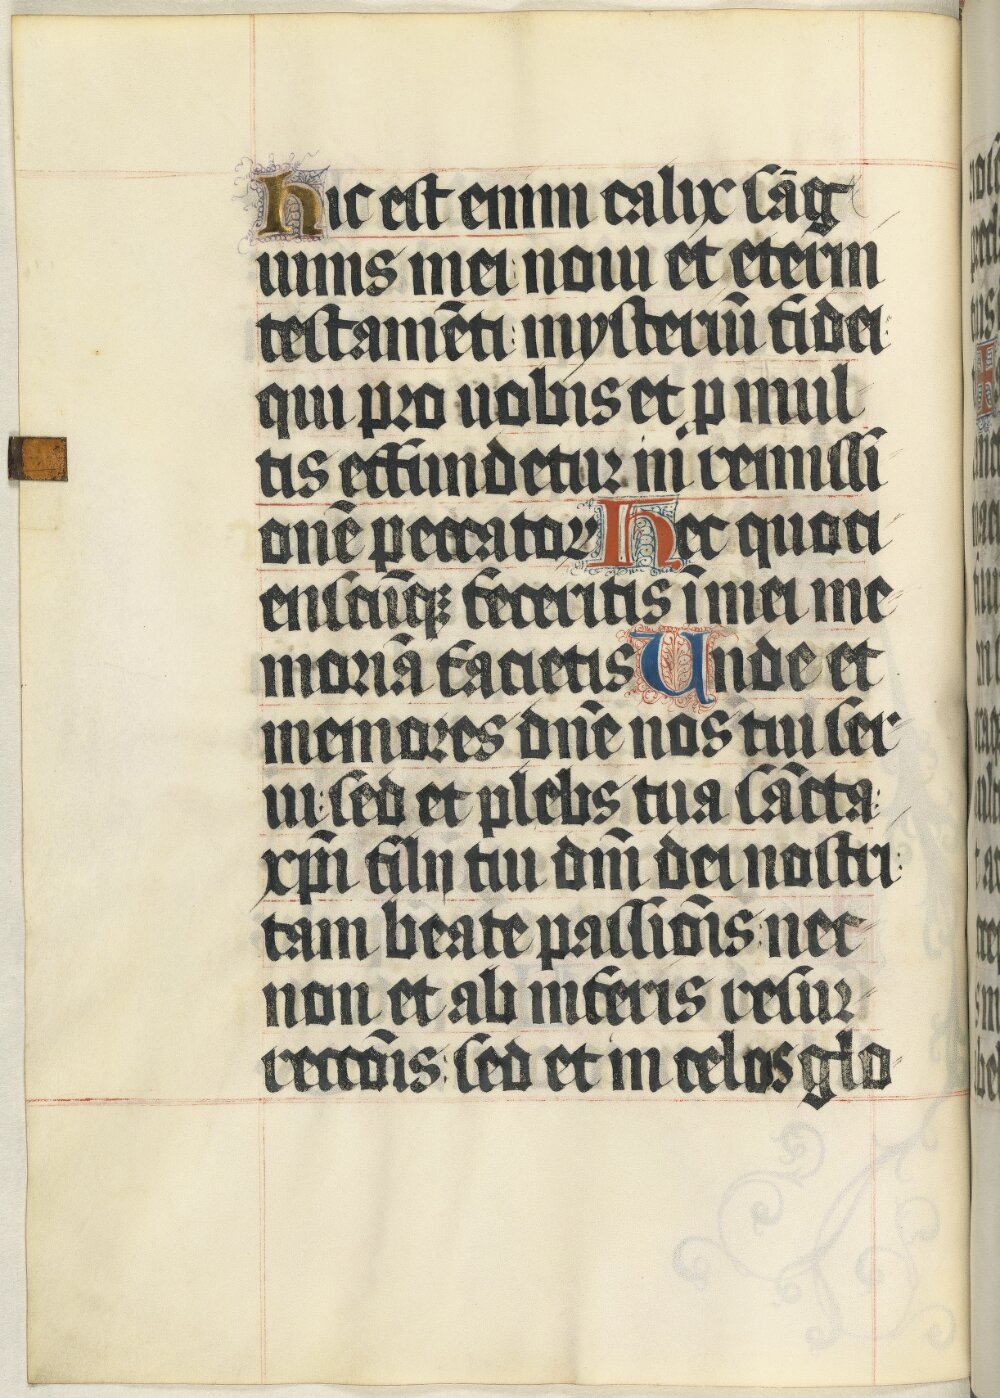 Hic est enim calix sāg
uinis mei noui et eterni
testamēti: mysteriū fidei:
qui pro uobis et p mul
tis effundetur in remissi
onē peccator Hec quoci
enscūqȝ feceritis ī mei me
moriā facietis Unde et
memores dn̄e nos tui ser
ui: sed et plebs tua sācta:
xp̄i filii tui dn̄i dei nostri:
tam beate passiōis: nec
non et ab inferis resur
rectōis: sed et in celos glo